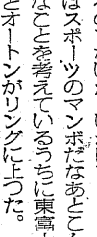 はスポーツのマンボだなあとこん
なことを考えているうちに東富士
とオートンがリングに上つた。